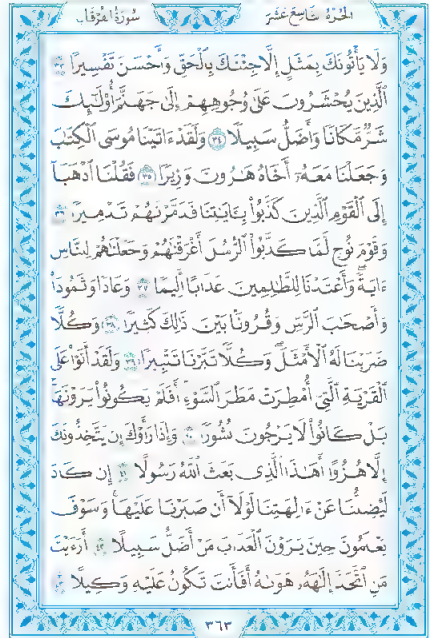 الجزء التاسع عشر
سورة الفرقان
وَلَا يَأْتُونَكَ بِمَثَلٍ إِلَّا جِئْنَٰكَ بِالْحَقِّ وَأَحْسَنَ تَفْسِيرًا ٣٣
الَّذِينَ يُحْشَرُونَ عَلَىٰ وُجُوهِهِمْ إِلَىٰ جَهَنَّمَ أُوْلَٰٓئِكَ
شَرٌّ مَّكَانًا وَأَضَلُّ سَبِيلًا ٣٤ وَلَقَدْ ءَاتَيْنَا مُوسَى الْكِتَٰبَ
وَجَعَلْنَا مَعَهُۥٓ أَخَاهُ هَٰرُونَ وَزِيرًا ٣٥ فَقُلْنَا اذْهَبَآ
إِلَى الْقَوْمِ الَّذِينَ كَذَّبُواْ بِـَٔايَٰتِنَا فَدَمَّرْنَٰهُمْ تَدْمِيرًا ٣٦
وَقَوْمَ نُوحٍ لَّمَّا كَذَّبُواْ الرُّسُلَ أَغْرَقْنَٰهُمْ وَجَعَلْنَٰهُمْ لِلنَّاسِ
ءَايَةً وَأَعْتَدْنَا لِلظَّٰلِمِينَ عَذَابًا أَلِيمًا ٣٧ وَعَادًا وَثَمُودَاْ
وَأَصْحَٰبَ الرَّسِّ وَقُرُونًۢا بَيْنَ ذَٰلِكَ كَثِيرًا ٣٨ وَكُلًّا
ضَرَبْنَا لَهُ الْأَمْثَٰلَ وَكُلًّا تَبَّرْنَا تَتْبِيرًا ٣٩ وَلَقَدْ أَتَوْاْ عَلَى
الْقَرْيَةِ الَّتِيٓ أُمْطِرَتْ مَطَرَ السَّوْءِ أَفَلَمْ يَكُونُواْ يَرَوْنَهَا
بَلْ كَانُواْ لَا يَرْجُونَ نُشُورًا ٤٠ وَإِذَا رَأَوْكَ إِن يَتَّخِذُونَكَ
إِلَّا هُزُوًا أَهَٰذَا الَّذِي بَعَثَ اللَّهُ رَسُولًا ٤١ إِن كَادَ
لَيُضِلُّنَا عَنْ ءَالِهَتِنَا لَوْلَآ أَن صَبَرْنَا عَلَيْهَا وَسَوْفَ
يَعْلَمُونَ حِينَ يَرَوْنَ الْعَذَابَ مَنْ أَضَلُّ سَبِيلًا ٤٢ أَرَءَيْتَ
مَنِ اتَّخَذَ إِلَٰهَهُۥ هَوَىٰهُ أَفَأَنتَ تَكُونُ عَلَيْهِ وَكِيلًا ٤٣
٣٦٣